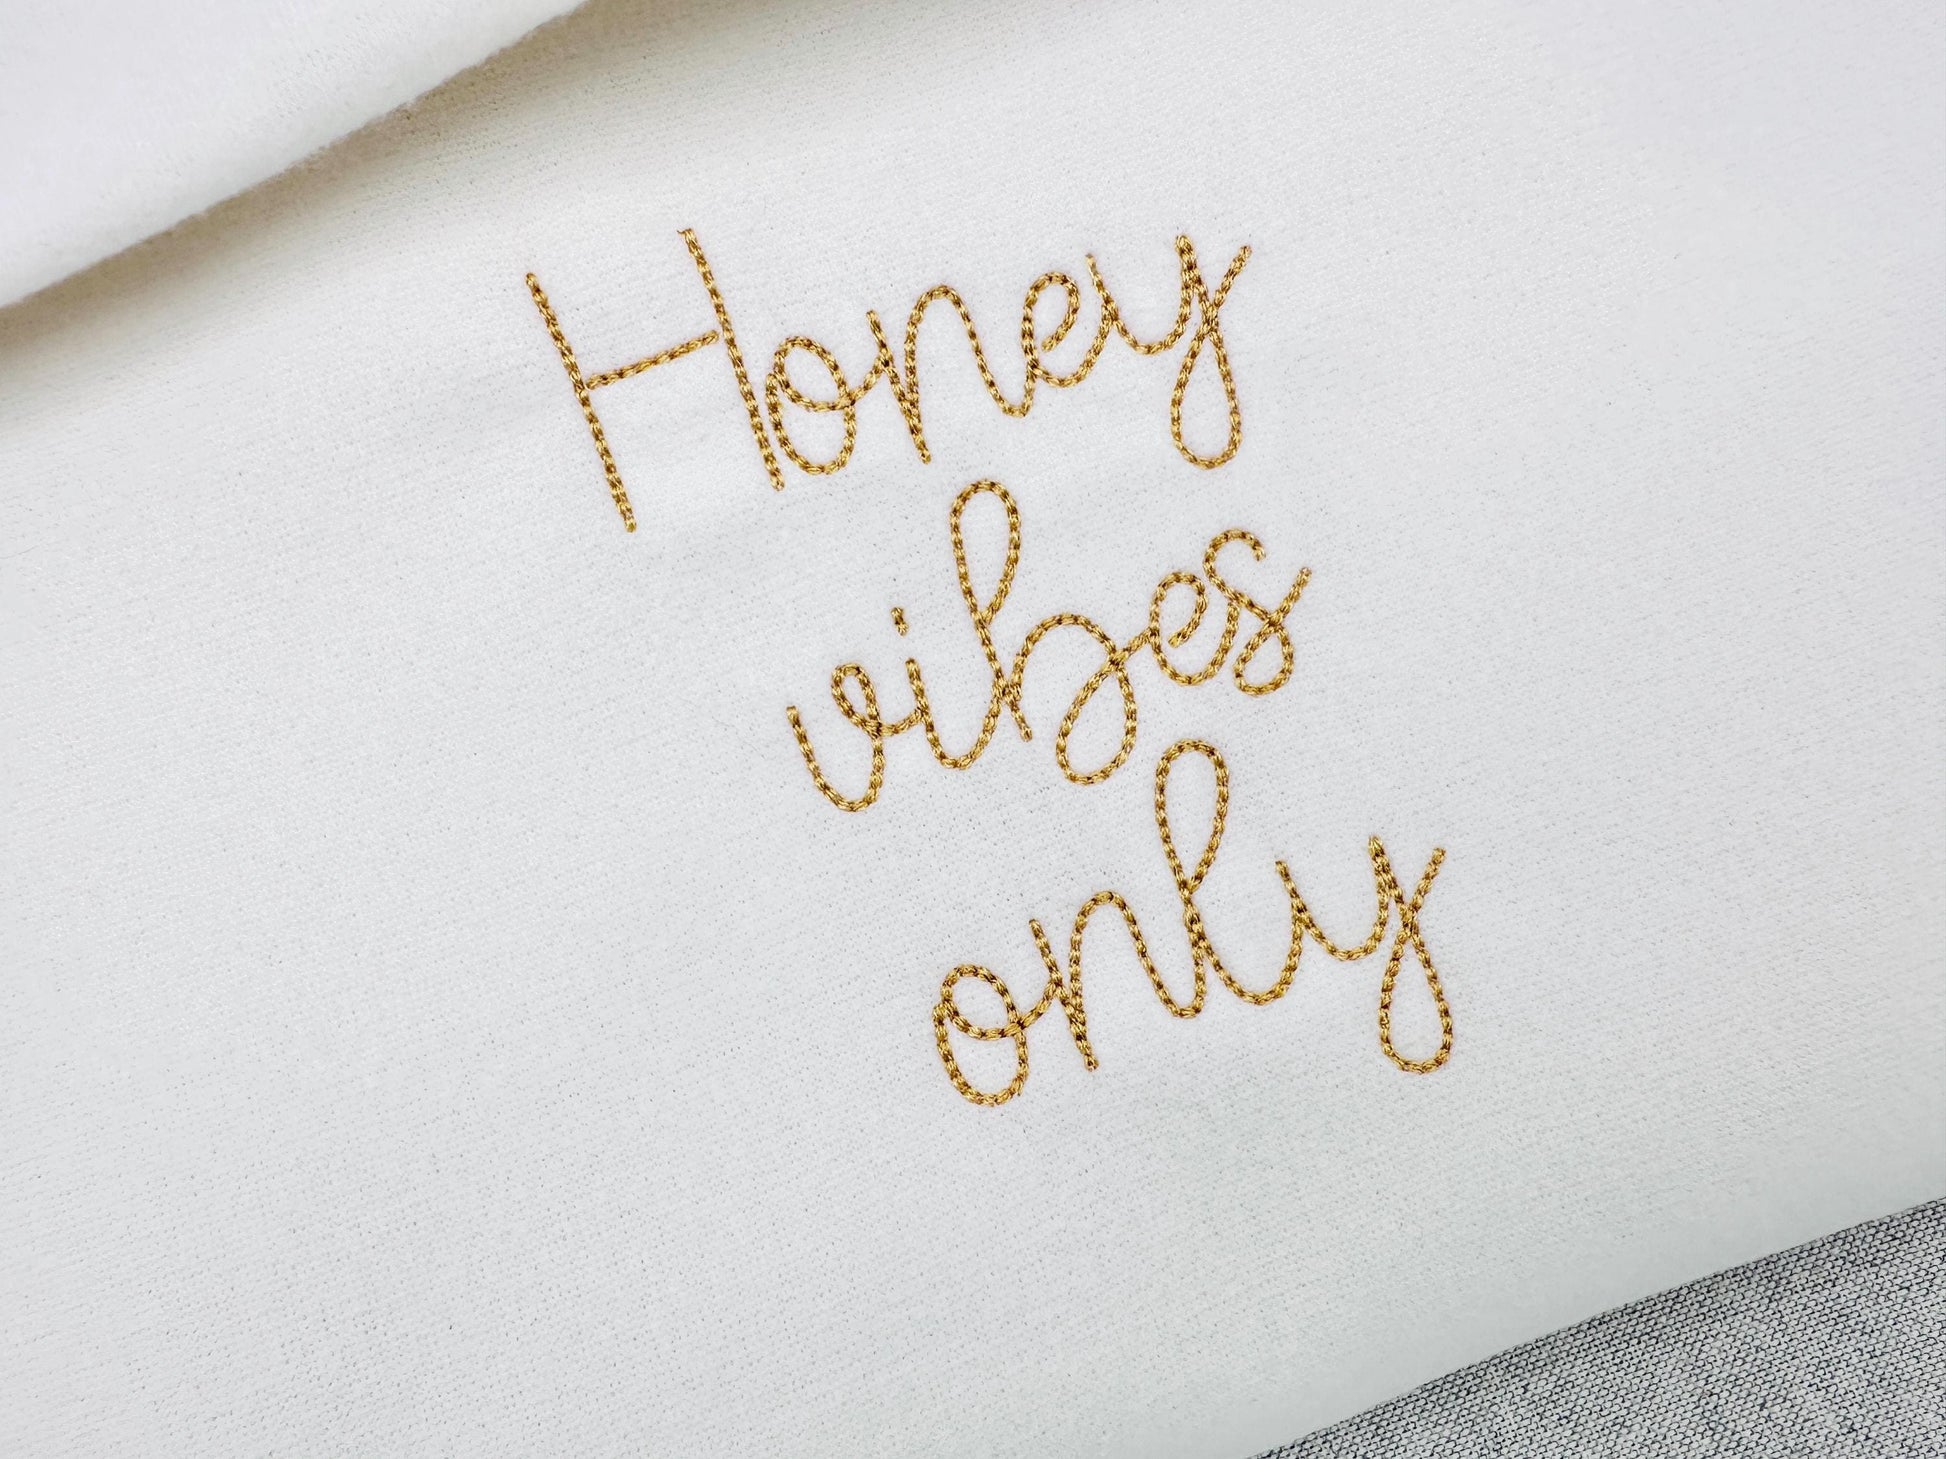 Honey
vibes
only